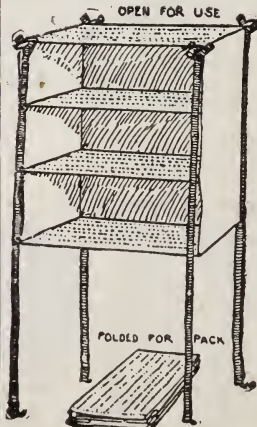 OPEN FOR USE
FOLDED FOR PACK